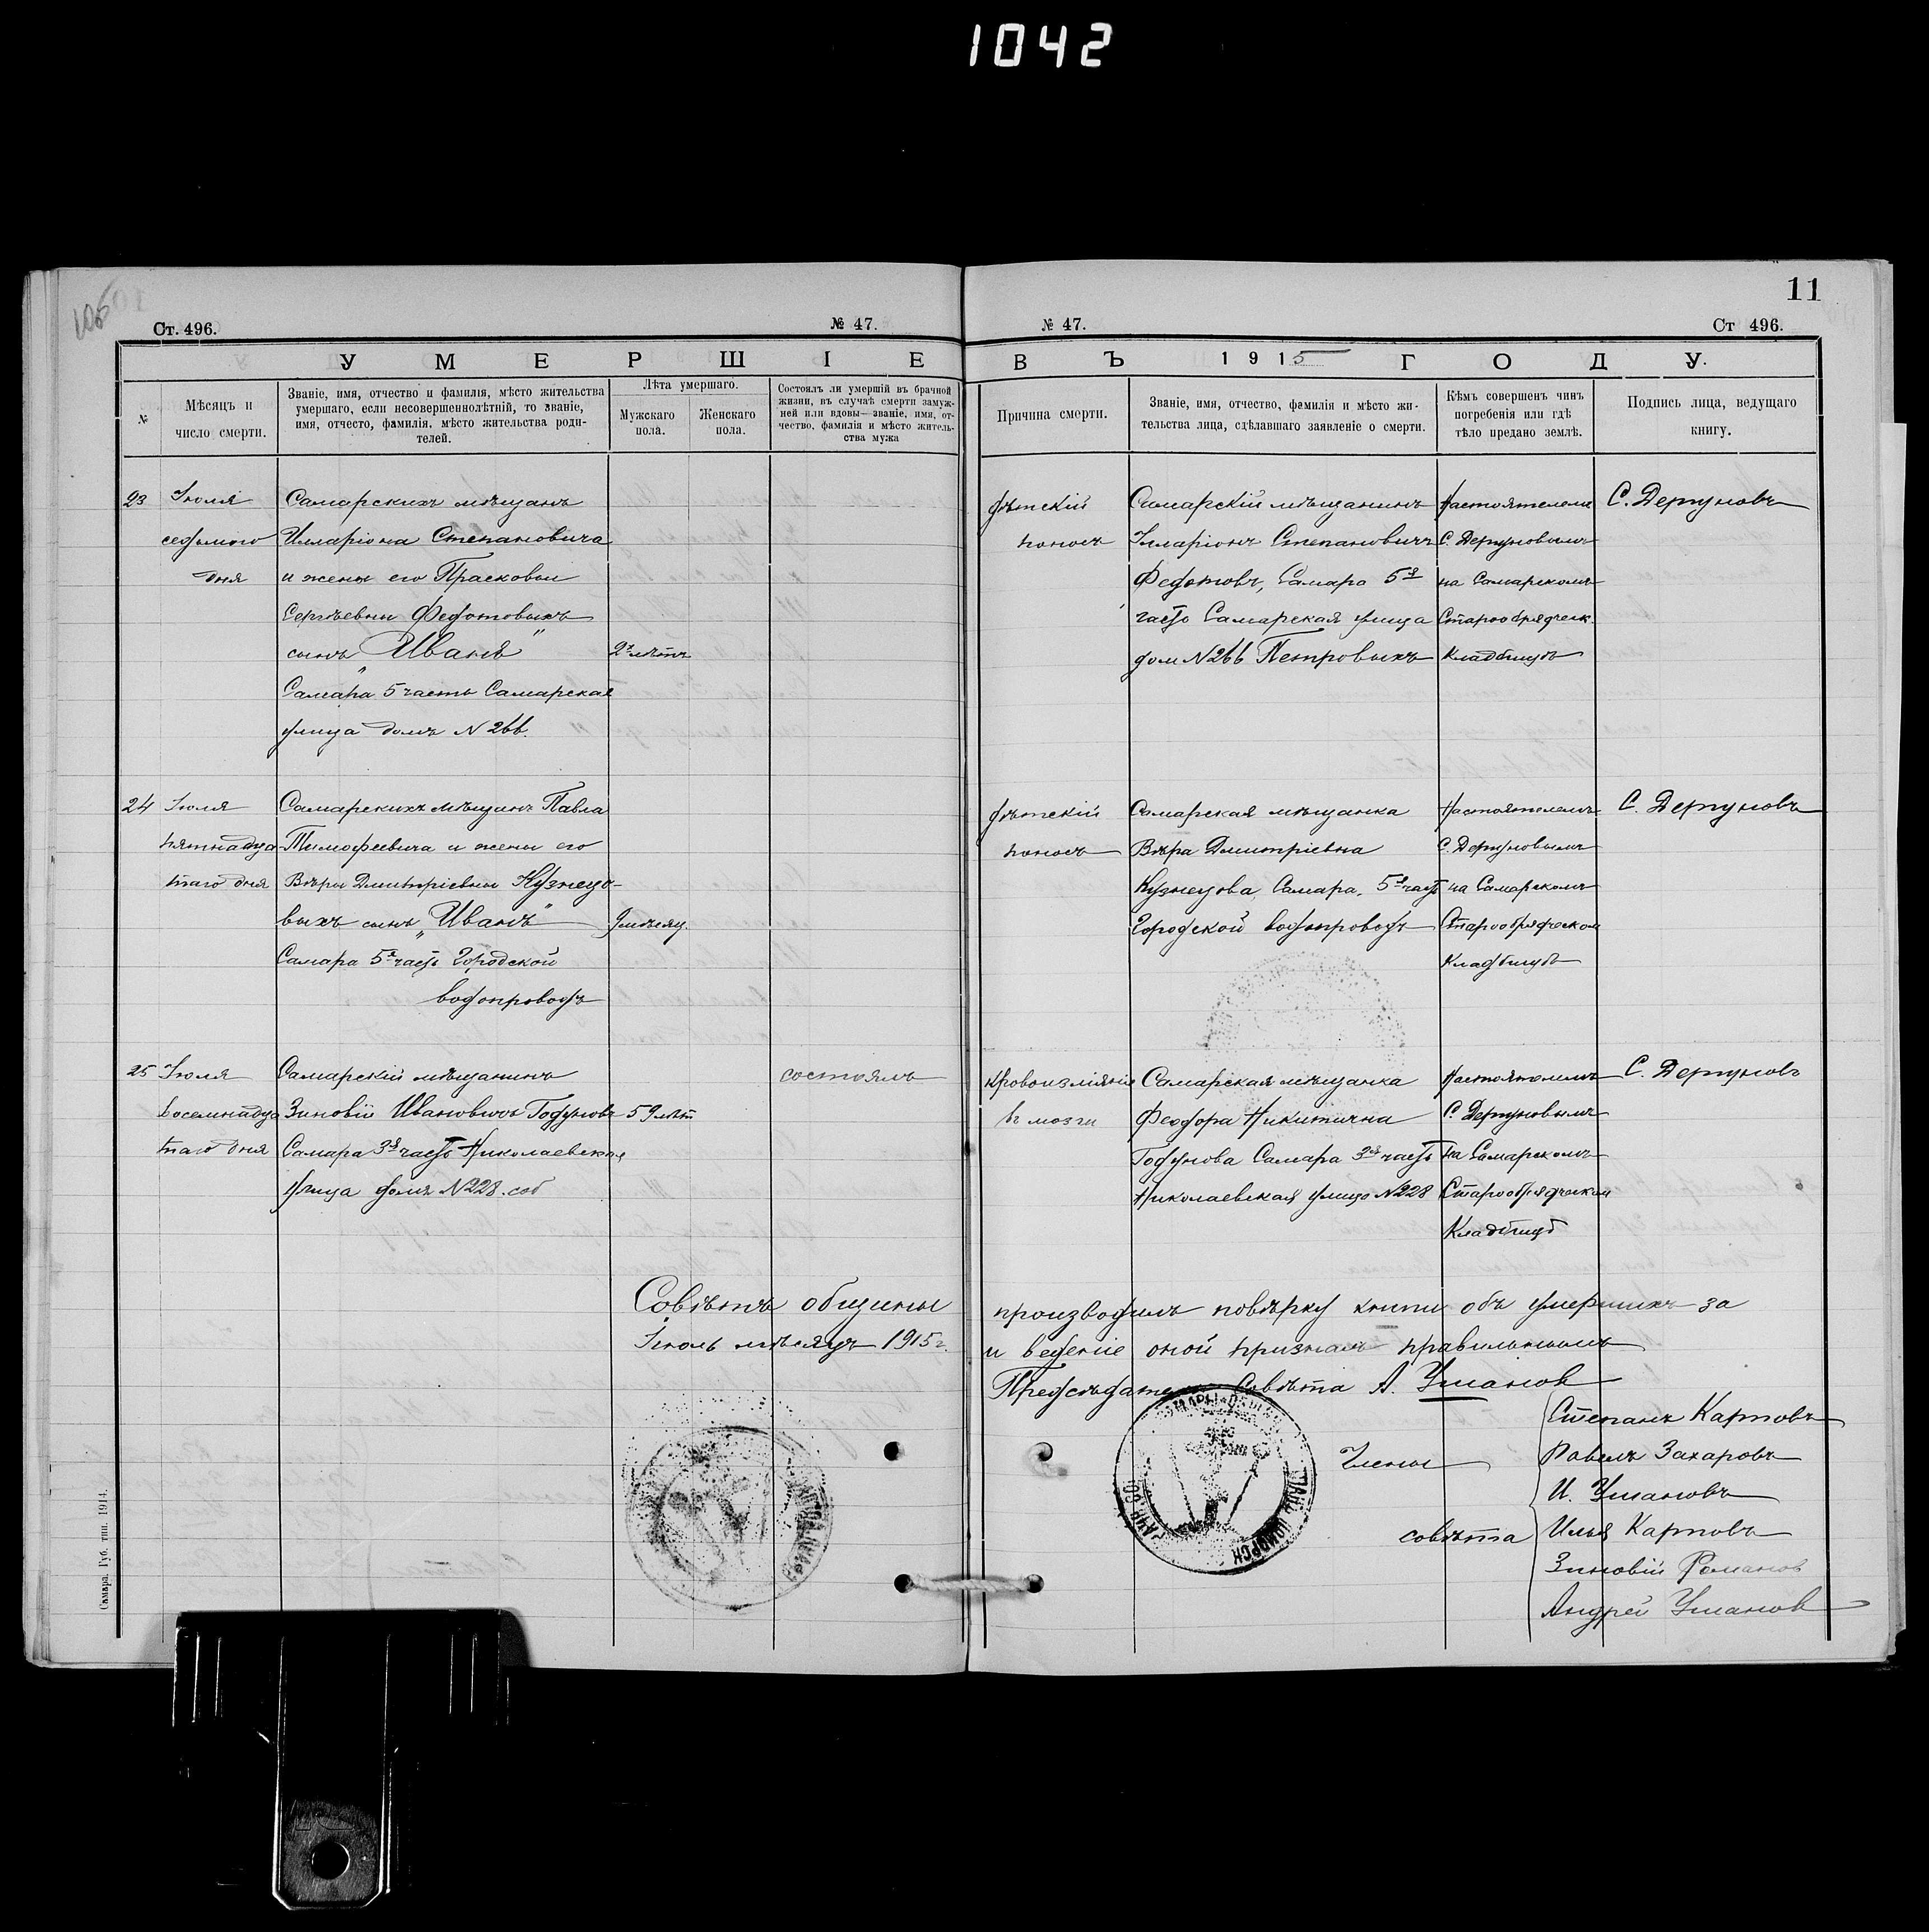 1042
11
Ст. 496.
№ 47.
№ 47.
Ст 496.
УМЕРШІЕ
ВЪ 1915 ГОДУ.
№
Мѣсяцъ и
число смерти.
Званіе, имя, отчество и фамилія, мѣсто жительства
умершаго, если несовершеннолѣтній, то званіе,
имя, отчесто, фамилія, мѣсто жительства роди-
телей.
Лѣта умершаго.
Мужскаго
пола.
Женскаго
пола.
Состоялъ ли умершій въ брачной
жизни, въ случаѣ смерти замуж-
ней или вдовы—званіе, имя, от-
чество, фамилія и мѣсто житель-
ства мужа
Причина смерти.
Званіе, имя, отчество, фамилія и мѣсто жи-
тельства лица, сдѣлавшаго заявленіе о смерти.
Кѣмъ совершенъ чинъ
погребенія или гдѣ
тѣло предано землѣ.
Подпись лица, ведущаго
книгу.
23
Іюля
седьмого
дня
Самарскихъ мѣщанъ
Илларіона Степановича
и жены его Прасковьи
Сергѣевны Федотовыхъ
сынъ „Иванъ"
Самара 5 часть Самарская
улица домъ N 266.
2х лѣтъ
дѣтскій
поносъ
Самарскій мѣщанинъ
Илларіонъ Степановичъ
Федотовъ, Самара 5я
часть Самарская улица
дом N 266 Петровыхъ
Настоятелем
С. Дертуновымъ
на Самарскомъ
Старообрядческ.
Кладбищѣ
С. Дертуновъ
24
Іюля
пятнадца-
таго дня
Самарскихъ мѣщанъ Павла
Тимофеевича и жены его
Вѣры Дмитріевны Кузнецо-
выхъ сынъ „Иванъ"
Самара 5я часть Городской
водопроводъ
9 мѣсяц.
дѣтскій
поносъ
Самарская мѣщанка
Вѣра Дмитріевна
Кузнецова, Самара, 5я часть
Городской водопроводъ
Настоятелемъ
С. Дертуновымъ
на Самарскомъ
Старообрядческом
Кладбищѣ
С. Дертуновъ
25
Іюля
восемнадца
таго дня
Самарскій мѣщанинъ
Зиновій Ивановичъ Годуновъ
Самара 3я часть Николаевская
улица домъ N 228 соб
59 лѣт
состоялъ
кровоизліяніе
въ мозги
Самарская мѣщанка
Феодора Никитична
Годунова Самара 3я часть
Николаевская улица N 228
Настоятелемъ
С. Дертуновымъ
на Самарскомъ
Старообрядческом
Кладбищѣ
С. Дертуновъ
Совѣтъ общины производилъ повѣрку книги объ умершихъ за
Іюль мѣсяцъ 1915 г. и веденіе оной призналъ правильнымъ
Предсѣдатель Совѣта А. Уманов
Члены
совѣта
Степанъ Карповъ
Павелъ Захаровъ
И. Умановъ
Илья Карповъ
Зиновій Романов
Андрей Уманов
Самара. Губ. тип. 1914.